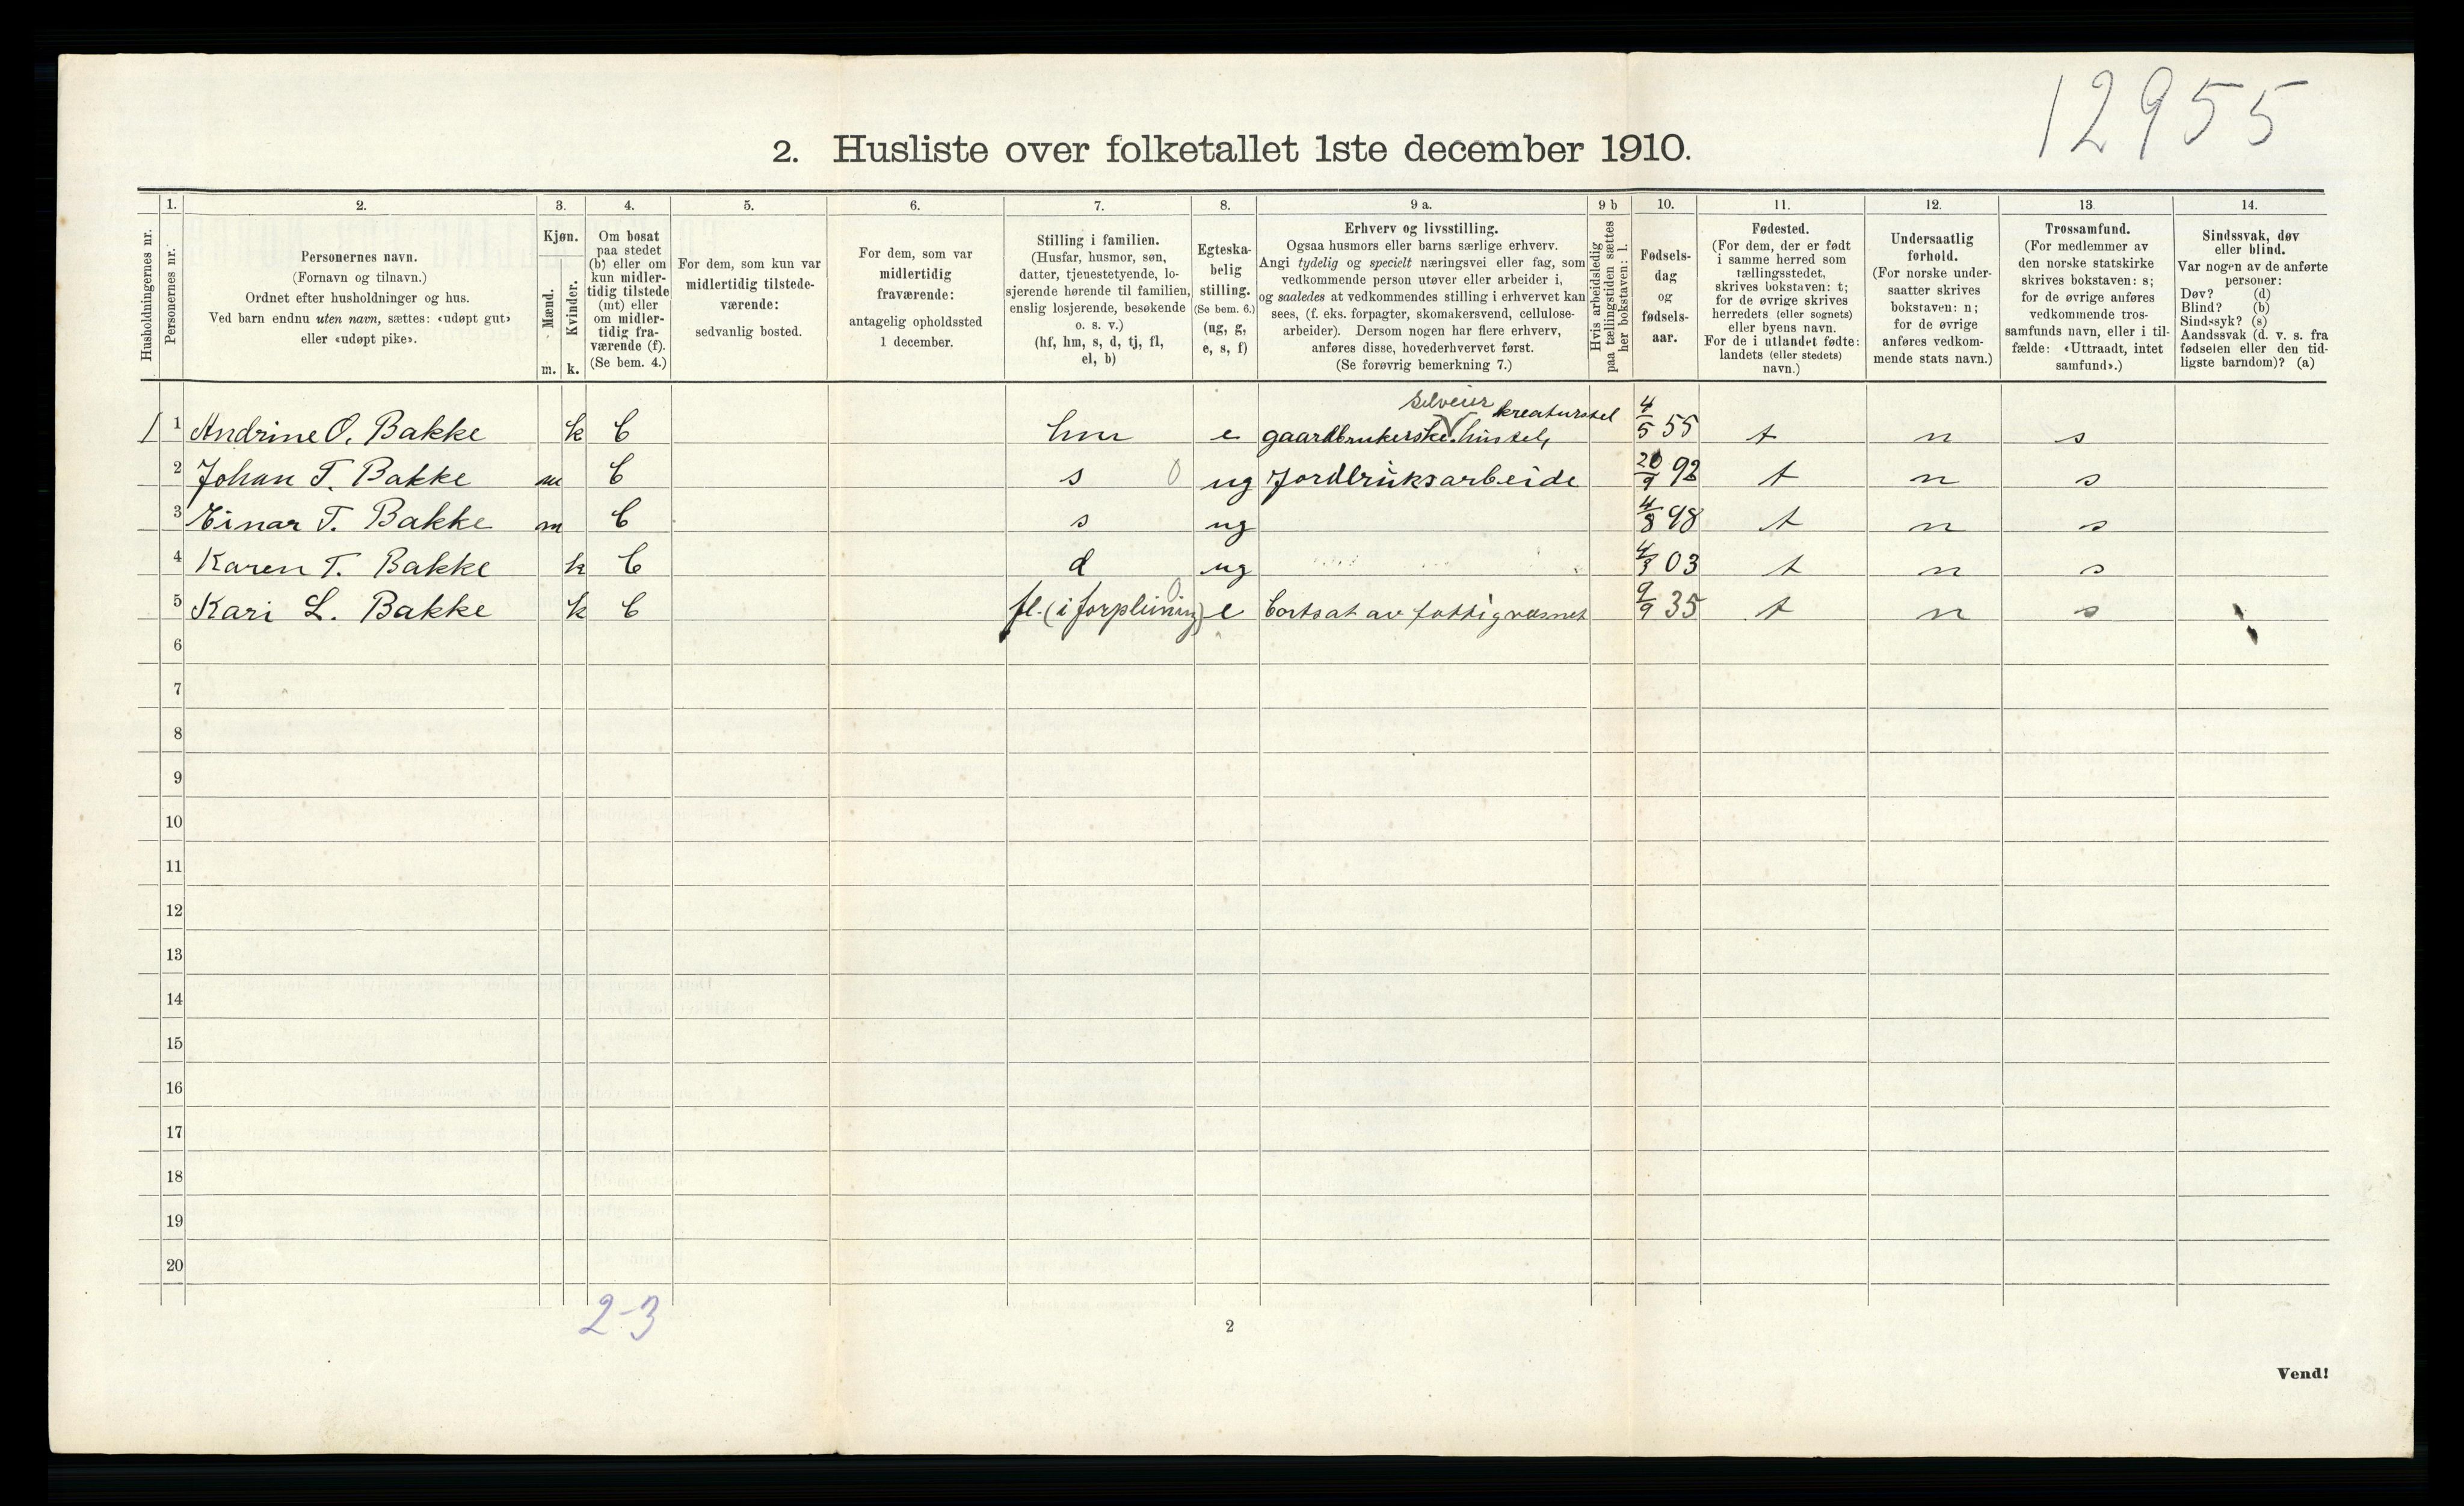 12955
2. Husliste over folketallet 1ste december 1910.
Husholdningernes nr.
1.
Personernes nr.
2.
Personernes navn.
(Fornavn og tilnavn.)
Ordnet efter husholdninger og hus.
Ved barn endnu uten navn, sættes: «udøpt gut»
eller «udøpt pike».
3.
Kjøn.
Mænd.
Kvinder.
m. k.
4.
Om bosat
paa stedet
(b) eller om
kun midler-
tidig tilstede
(mt) eller
om midler-
tidig fra-
værende (f).
(Se bem. 4.)
5.
For dem, som kun var
midlertidig tilstede-
værende:
sedvanlig bosted.
6.
For dem, som var
midlertidig
fraværende:
antagelig opholdssted
1 december.
7.
Stilling i familien.
(Husfar, husmor, søn,
datter, tjenestetyende, lo-
sjerende hørende til familien,
enslig losjerende, besøkende
o. s. v.)
(hf, hm, s, d, tj, fl,
el, b)
8.
Egteska-
belig
stilling.
(Se bem. 6.)
(ug, g,
e, s, f)
9 a.
Erhverv og livsstilling.
Ogsaa husmors eller barns særlige erhverv.
Angi tydelig og specielt næringsvei eller fag, som
vedkommende person utøver eller arbeider i,
og saaledes at vedkommendes stilling i erhvervet kan
sees, (f. eks. forpagter, skomakersvend, cellulose-
arbeider). Dersom nogen har flere erhverv,
anføres disse, hovederhvervet først.
(Se forøvrig bemerkning 7.)
9 b
Hvis arbeidsledig
paa tællingstiden sættes
her bokstaven: l.
10.
Fødsels-
dag
og
fødsels-
aar.
11.
Fødested.
(For dem, der er født
i samme herred som
tællingsstedet,
skrives bokstaven: t;
for de øvrige skrives
herredets (eller sognets)
eller byens navn.
For de i utlandet fødte:
landets (eller stedets)
navn.)
12.
Undersaatlig
forhold.
(For norske under-
saatter skrives
bokstaven: n;
for de øvrige
anføres vedkom-
mende stats navn.)
13
Trossamfund.
(For medlemmer av
den norske statskirke
skrives bokstaven: s;
for de øvrige anføres
vedkommende tros-
samfunds navn, eller i til-
fælde: «Uttraadt, intet
samfund».)
14.
Sindssvak, døv
eller blind.
Var nogen av de anførte
personer:
Døv? (d)
Blind? (b)
Sindssyk? (s)
Aandssvak (d. v. s. fra
fødselen eller den tid-
ligste barndom)? (a)
selveier kreaturstel
1 1 Andrine O. Bakke k b hm e gaardbrukerske. husstel, 4/5 55 t n s
2 Johan T. Bakke m b s 0 ug Jordbruksarbeide 20/9 92 t n s
3 Einar T. Bakke m b s ug 4/8 98 t n s
4 Karen T. Bakke k b d ug 03 t n s
5 Kari L. Bakke k b fl. (i forpleining) 0 e bortsat av fattigvæsnet 9/9 35 t n s
6
7
8
9
10
11
12
13
14
15
16
17
18
19
20
2-3
2
Vend!